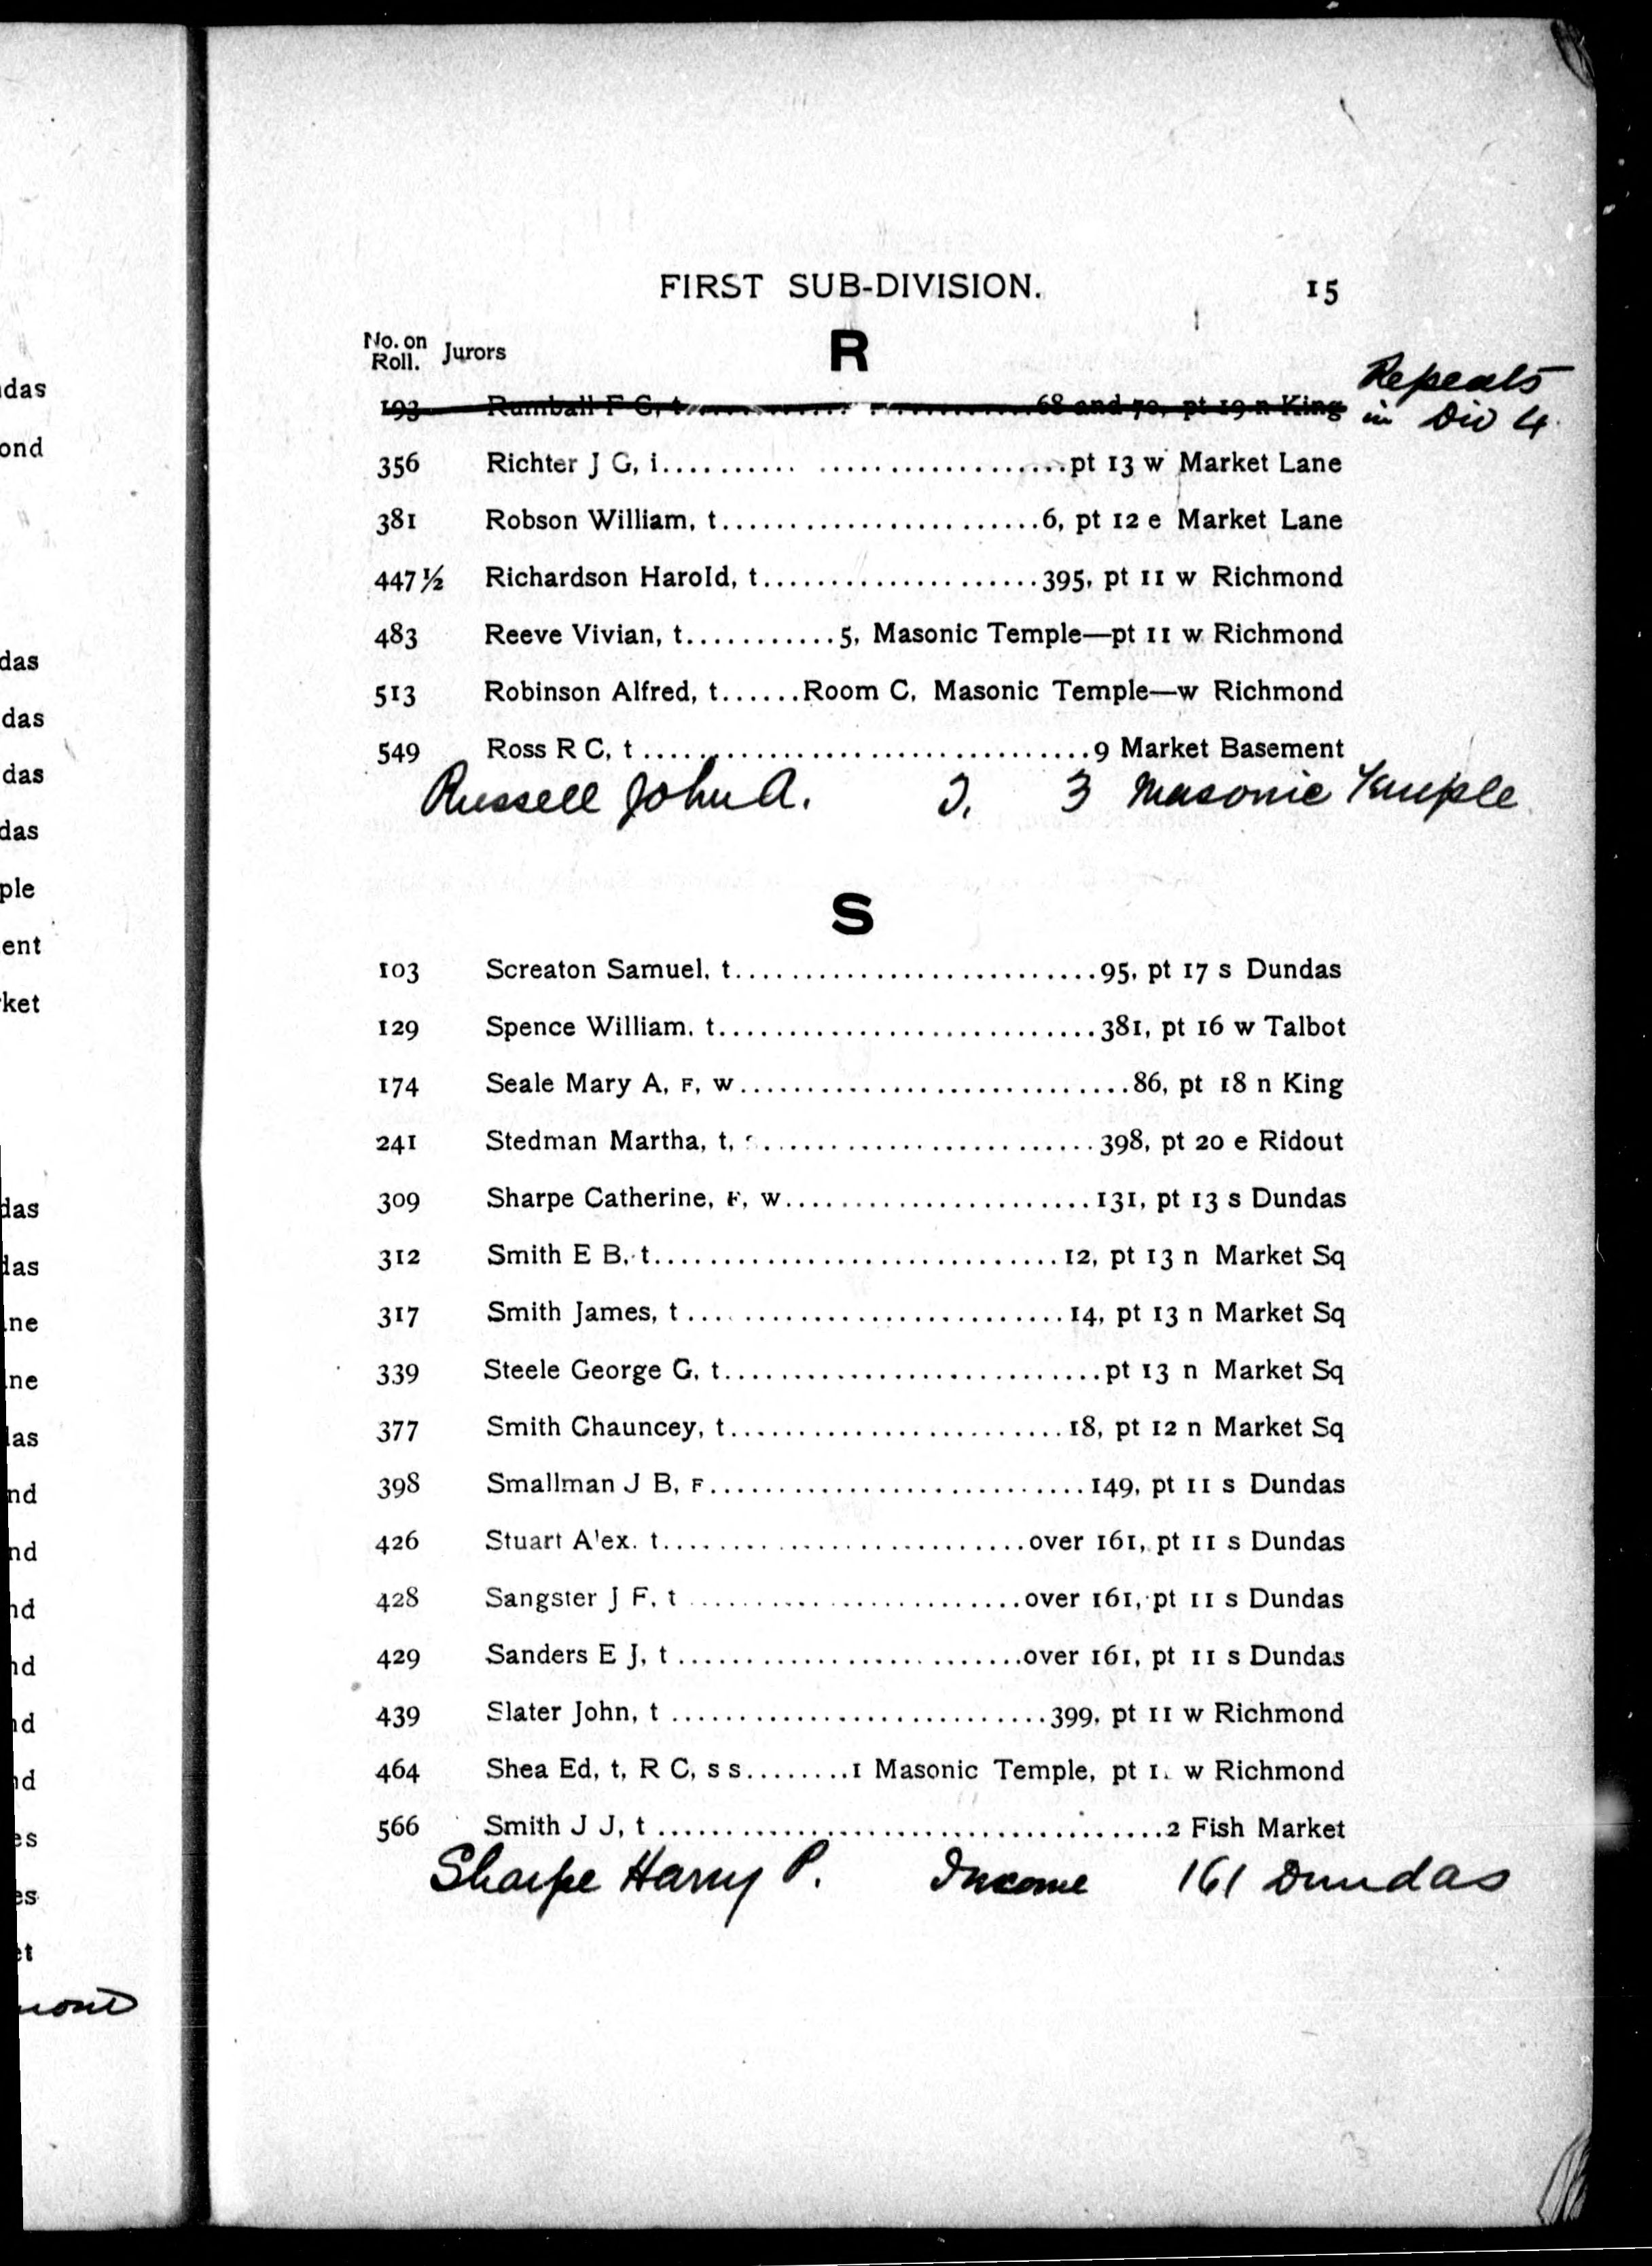 FIRST SUB-DIVISION. 15
No. on Roll. Jurors
R
193 Rumball F G, t.......... ..........68 and 70, pt 19 n King
Repeats
in Div 4
356 Richter J G, i.......... ....................pt 13 w Market Lane
381 Robson William, t........................6, pt 12 e Market Lane
447½ Richardson Harold, t.....................395, pt 11 w Richmond
483 Reeve Vivian, t...........5, Masonic Temple—pt 11 w Richmond
513 Robinson Alfred, t......Room C, Masonic Temple—w Richmond
549 Ross R C, t .................................9 Market Basement
Russell John A. T. 3 Masonic Temple
S
103 Screaton Samuel, t...........................95, pt 17 s Dundas
129 Spence William, t............................381, pt 16 w Talbot
174 Seale Mary A, F, w.............................86, pt 18 n King
241 Stedman Martha, t, .........................398, pt 20 e Ridout
309 Sharpe Catherine, F, w.......................131, pt 13 s Dundas
312 Smith E B, t..............................12, pt 13 n Market Sq
317 Smith James, t ............................14, pt 13 n Market Sq
339 Steele George G, t............................pt 13 n Market Sq
377 Smith Chauncey, t.........................18, pt 12 n Market Sq
398 Smallman J B, F............................149, pt 11 s Dundas
426 Stuart Alex. t...........................over 161, pt 11 s Dundas
428 Sangster J F, t .........................over 161, pt 11 s Dundas
429 Sanders E J, t ..........................over 161, pt 11 s Dundas
439 Slater John, t ............................399, pt 11 w Richmond
464 Shea Ed, t, R C, s s........1 Masonic Temple, pt 1. w Richmond
566 Smith J J, t ......................................2 Fish Market
Sharpe Harry P. Income 161 Dundas